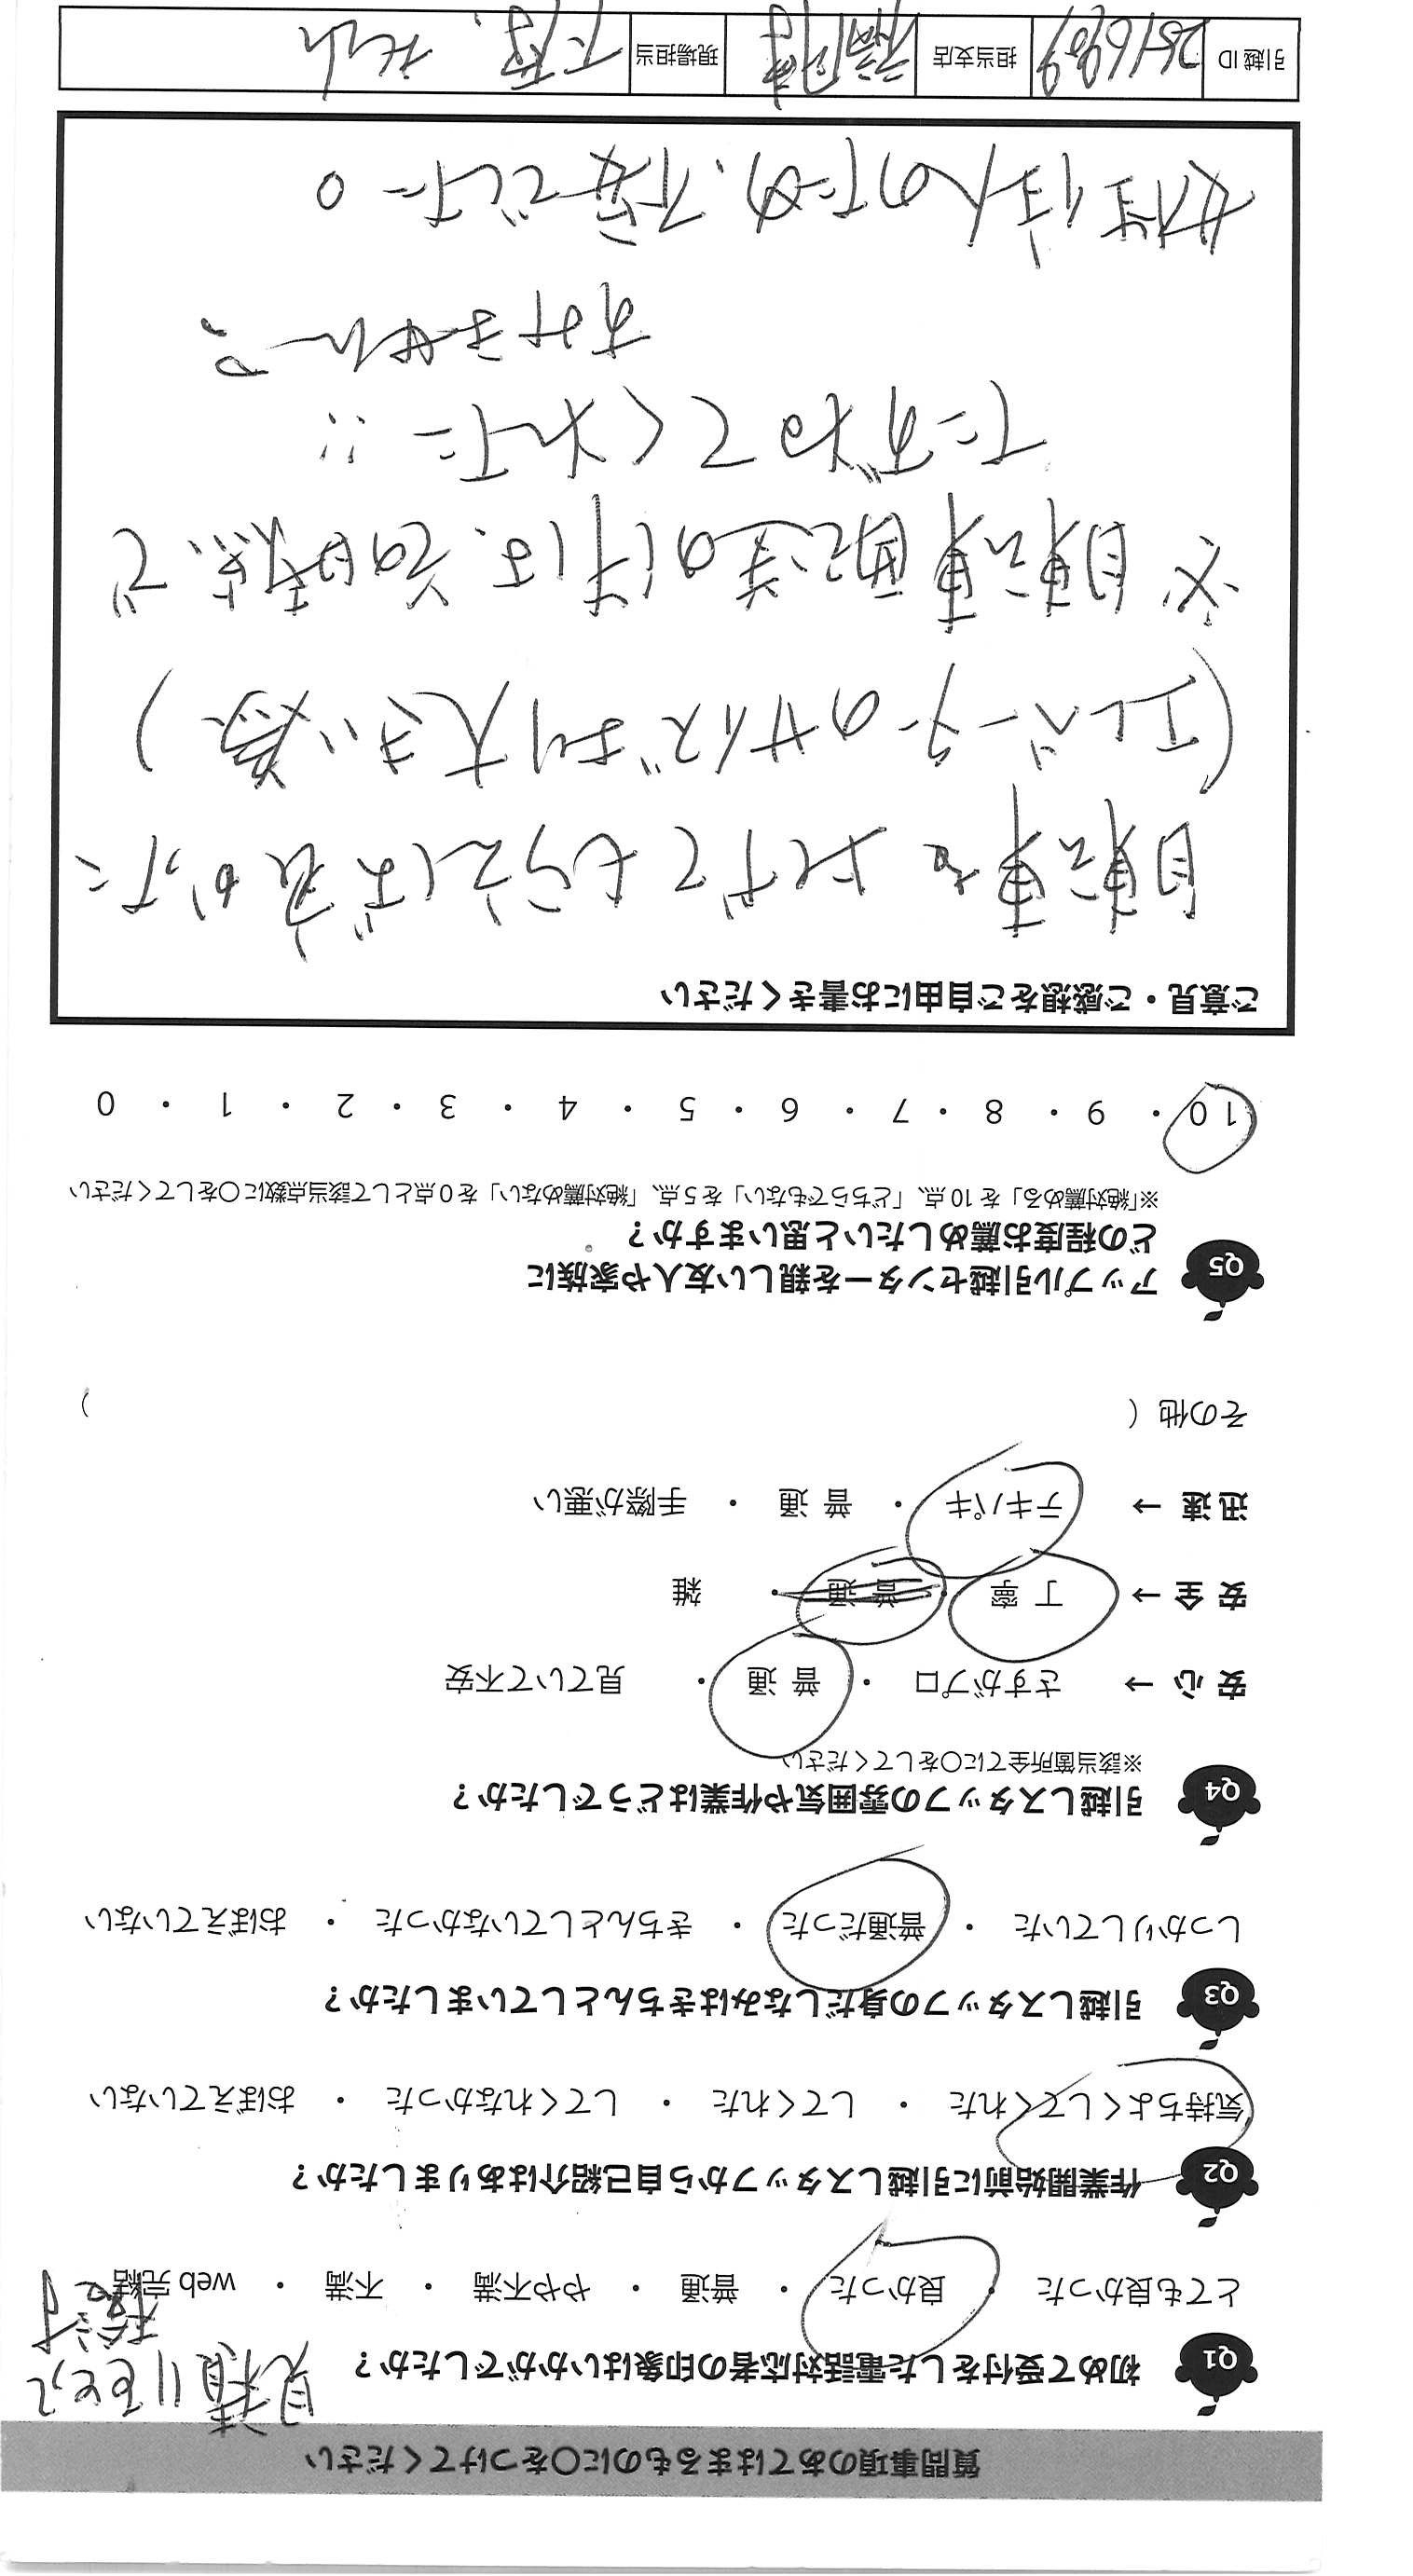 質問事項のあてはまるものに〇をつけてください
Q1 初めて受付をした電話対応者の印象はいかがでしたか？
見積りをとって
検討
とても良かった ・ 良かった ・ 普通 ・ やや不満 ・ 不満 ・ web 完結
Q2 作業開始前に引越しスタッフから自己紹介はありましたか？
気持ちよくしてくれた ・ してくれた ・ してくれなかった ・ おぼえていない
Q3 引越しスタッフの身だしなみはきちんとしていましたか？
しっかりしていた ・ 普通だった ・ きちんとしていなかった ・ おぼえていない
Q4 引越しスタッフの雰囲気や作業はどうでしたか？
※該当箇所全てに〇をしてください
安 心 → さすがプロ ・ 普 通 ・ 見ていて不安
安 全 → 丁 寧 ・ 普 通 ・ 雑
迅 速 → テキパキ ・ 普 通 ・ 手際が悪い
その他（ ）
Q5 アップル引越センターを親しい友人や家族に
どの程度お薦めしたいと思いますか？
※「絶対薦める」を 10 点、「どちらでもない」を 5 点、「絶対薦めない」を 0 点として該当点数に〇をしてください
10 ・ 9 ・ 8 ・ 7 ・ 6 ・ 5 ・ 4 ・ 3 ・ 2 ・ 1 ・ 0
ご意見・ご感想をご自由にお書きください
自転車を 上げてもらえば良かった
(エレベーターのサイズより大きい為)
※ 自転車配送の件は、その時点で
たずねてくれた!!
すみません。
女性1人のため、不安でした。
引越 ID 担当支店 現場担当